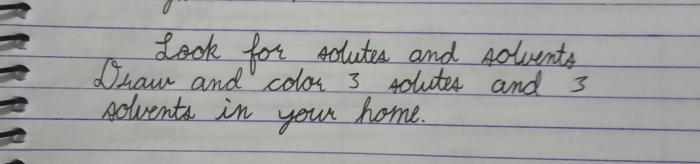 Look for solutes and solvents
Draw and color 3 solutes and 3
solvents in your home.